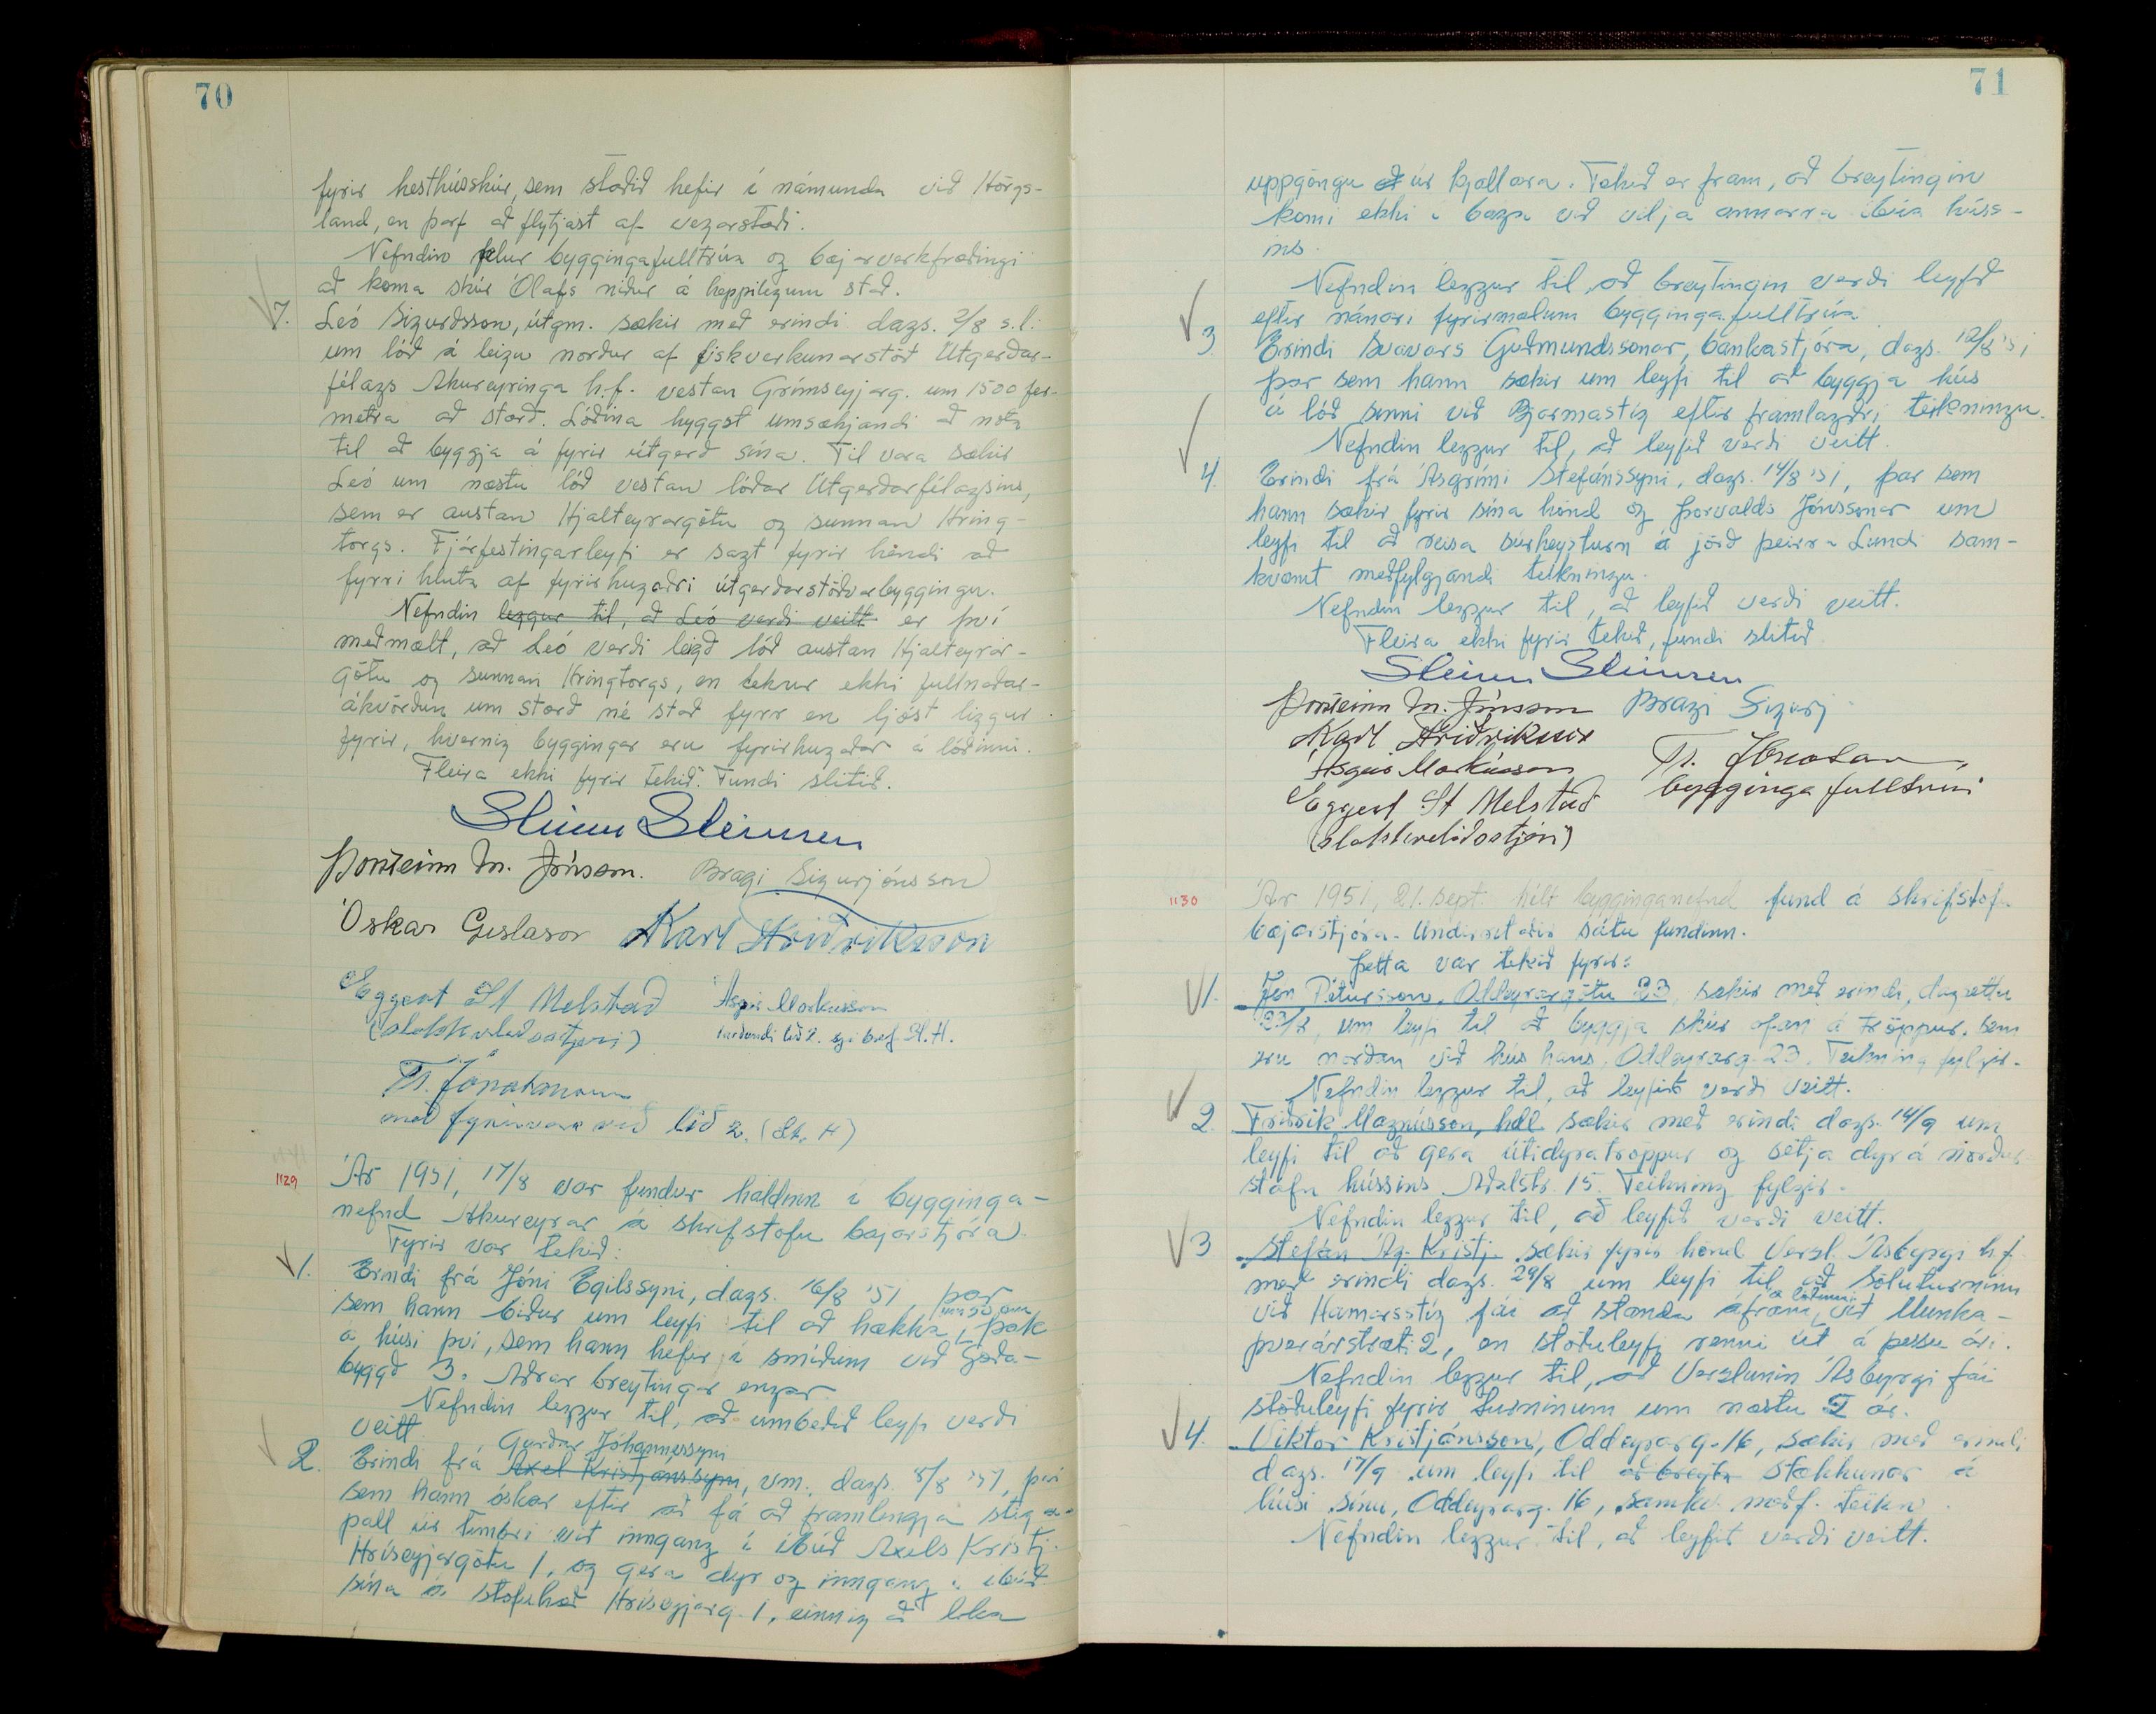 70
fyrir hesthússkúr, sem staðið hefir í námunda við Hörgs-
land, en þarf að flytjast af vegarstæði.
Nefndin felur byggingafulltrúa og bæjarverkfræðingi
að koma skúr Ólafs niður á heppilegum stað.
7. Leó Sigurðsson, útgm. sækir með erindi dags. 2/8 s.l.
um lóð á leigu norður af fiskverkunarstöð Útgerðar-
félags Akureyringa h.f. vestan Grímseyjarg. um 1500 fer-
metra að stærð. Lóðina hyggst umsækjandi að nota
til að byggja á fyrir útgerð sína. Til vara sækir
Leó um næstu lóð vestan lóðar Útgerðarfélagsins,
sem er austan Hjalteyrargötu og sunnan Hring-
torgs. Fjárfestingarleyfi er sagt fyrir hendi að
fyrri hluta af fyrirhugaðri útgerðarstöðvarbyggingu.
Nefndin leggur til, að Leó verði veitt er því
meðmælt, að Leó verði leigð lóð austan Hjalteyrar-
götu og sunnan Hringtorgs, en tekur ekki fullnaðar-
ákvörðun um stærð né stað fyrr en ljóst liggur
fyrir, hvernig byggingar eru fyrirhugaðar á lóðinni.
Fleira ekki fyrir tekið. Fundi slitið.
Steinn Steinsen
Þorsteinn M. Jónsson. Bragi Sigurjónsson
Óskar Gíslason Karl Friðriksson
Eggert St Melstað Ásgeir Markússon
(slökkviliðsstjóri) varðandi lið 2. sjá bréf St. H.
Tr. Jónatansson
með fyrirvara við lið 2. (St. H)
1129 Ár 1951, 17/8 var fundur haldinn í bygginga-
nefnd Akureyrar á skrifstofu bæjarstjóra.
Fyrir var tekið:
1. Erindi frá Jóni Egilssyni, dags. 16/8 '51, þar
sem hann biður um leyfi til að hækka um 50 cm þak
á húsi því, sem hann hefur í smíðum við Goða-
byggð 3. Aðrar breytingar engar.
Nefndin leggur til, að umbeðið leyfi verði
veitt.
Garðar Jóhannessyni
2. Erindi frá Axel Kristjánssyni, vm. dags. 8/8 '51, þar
sem hann óskar eftir að fá að framlengja stiga-
pall úr timbri við inngang í íbúð Axels Kristj.
Hríseyjargötu 1, og gera dyr og inngang í íbúð
sína á stofuhæð Hríseyjarg. 1, einnig að loka
71
uppgöngu úr kjallara. Tekið er fram, að breytingin
komi ekki í bága við vilja annarra íbúa húss-
ins.
Nefndin leggur til, að breytingin verði leyfð
eftir nánari fyrirmælum byggingafulltrúa
3. Erindi Svavars Guðmundssonar, bankastjóra, dags. 12/8 '51
þar sem hann sækir um leyfi til að byggja hús
á lóð sinni við Bjarmastíg eftir framlagðri teikningu.
Nefndin leggur til, að leyfið verði veitt.
4. Erindi frá Ásgrími Stefánssyni, dags. 14/8 '51, þar sem
hann sækir fyrir sína hönd og Þorvalds Jónssonar um
leyfi til að reisa súrheysturn á jörð þeirra Lundi sam-
kvæmt meðfylgjandi teikningu.
Nefndin leggur til, að leyfið verði veitt.
Fleira ekki fyrir tekið, fundi slitið.
Steinn Steinsen
Þorsteinn M. Jónsson Bragi Sigurj
Karl Friðriksson
Ásgeir Markússon Tr. Jónatansson,
Eggert St Melstað byggingafulltrúi
(slökkviliðsstjóri)
1130 Ár 1951, 21. sept. hélt bygginganefnd fund á skrifstofu
bæjarstjóra. Undirritaðir sátu fundinn.
Þetta var tekið fyrir:
1. Jón Pétursson, Oddeyrargötu 23, sækir með erindi, dagsettu
23/8, um leyfi til að byggja skúr ofan á tröppur, sem
eru norðan við hús hans, Oddeyrarg. 23. Teikning fylgir.
Nefndin leggur til, að leyfið verði veitt.
2. Friðrik Magnússon, hdl. sækir með erindi dags. 14/9 um
leyfi til að gera útidyratröppur og setja dyr á norður-
stafn hússins Aðalstr. 15. Teikning fylgir.
Nefndin leggur til, að leyfið verði veitt.
3 Stefán Ág. Kristj. sækir fyrir hönd Verzl. Ásbyrgi h.f.
með erindi dags. 29/8 um leyfi til að söluturninn
við Hamarsstíg fái að standa áfram, á lóðinni við Munka-
þverárstræti 2, en stöðuleyfi renni út á þessu ári.
Nefndin leggur til, að Verzlunin Ásbyrgi fái
stöðuleyfi fyrir turninum um næstu 2 ár.
4. Viktor Kristjánsson, Oddeyrarg. 16, sækir með erindi
dags. 17/9 um leyfi til að breyta stækkunar á
húsi sínu, Oddeyrarg. 16, samkv. meðf. teikn.
Nefndin leggur til, að leyfið verði veitt.